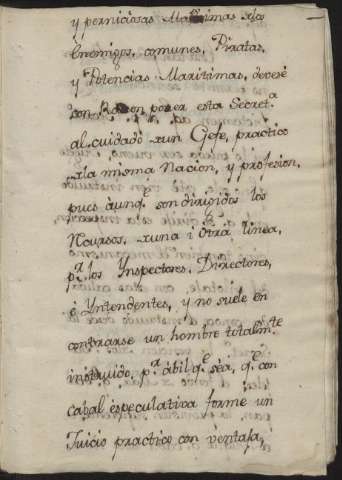 y perniciosas Maximas de los
Enemigos, comunes, Piratas,
y Potencias Maritimas, devese
con Razon poner esta Secret.a
al cuidado de un Gefe, practico
de la misma Nacion, y profesion,
pues aunq.e son dirigidos los
Recursos de una i otra linea,
p.r los Inspectores, Directores,
ô Yntendentes, y no suele en
contrarse un hombre totalm.te
instruido, p.r abil q.e sea, q.e con
cabal especulativa forme un
Juicio practico con ventaja,